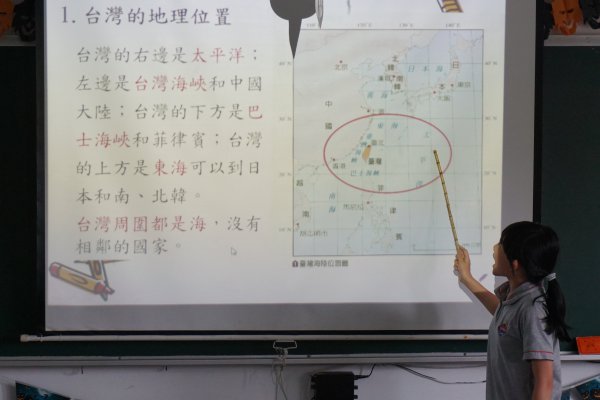 1. 台灣的地理位置
台灣的右邊是太平洋；
左邊是台灣海峽和中國
大陸；台灣的下方是巴
士海峽和菲律賓；台灣
的上方是東海可以到日
本和南、北韓。
台灣周圍都是海，沒有
相鄰的國家。
北京
北韓
南韓
日本海
日本
東京
大阪
黃海
中國
東海
太平洋
台北
臺灣
香港
巴士海峽
越南
南海
馬尼拉
菲律賓
胡志明市